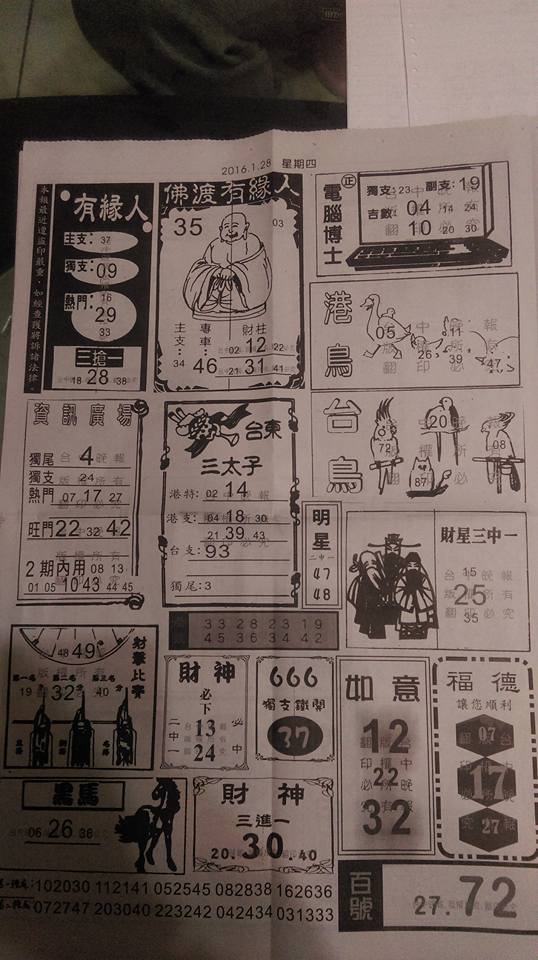 2016.1.28 星期四
本報最近遭盜印嚴重，如經查獲將訴諸法律。
有緣人
主支：37
獨支：09
熱門：16
29
33
三搶一
18 28 38
佛渡有緣人
35
03
主支：34
專車：46
財柱
02 12 22
21 31 41
電腦博士
正
獨支：23 副支：19
吉數：04 14 24
10 20 30
港鳥
05 11
26 39 47
台鳥
20
72 08
87
資訊廣場
獨尾 4
獨支 24
熱門 07 17 27
旺門 22 32 42
2期內用 08 13
01 05 10 43 44 45
台東
三太子
港特：02 14
港支：04 18 30
21 39 43
台支：93
獨尾：3
明星
二中一
47
48
財星三中一
15
25
35
33 28 23 19
45 36 34 42
射擊比賽
48 49
第一名 第二名 第三名
19 32 40
財神
必下
二中一
13
24
必中
666
獨支鐵開
37
如意
12
22
32
福德
讓您順利
07
17
27
黑馬
06 26 36
財神
三進一
20. 30. 40
102030 112141 052545 082838 162636
072747 203040 223242 042434 031333
百號
27. 72